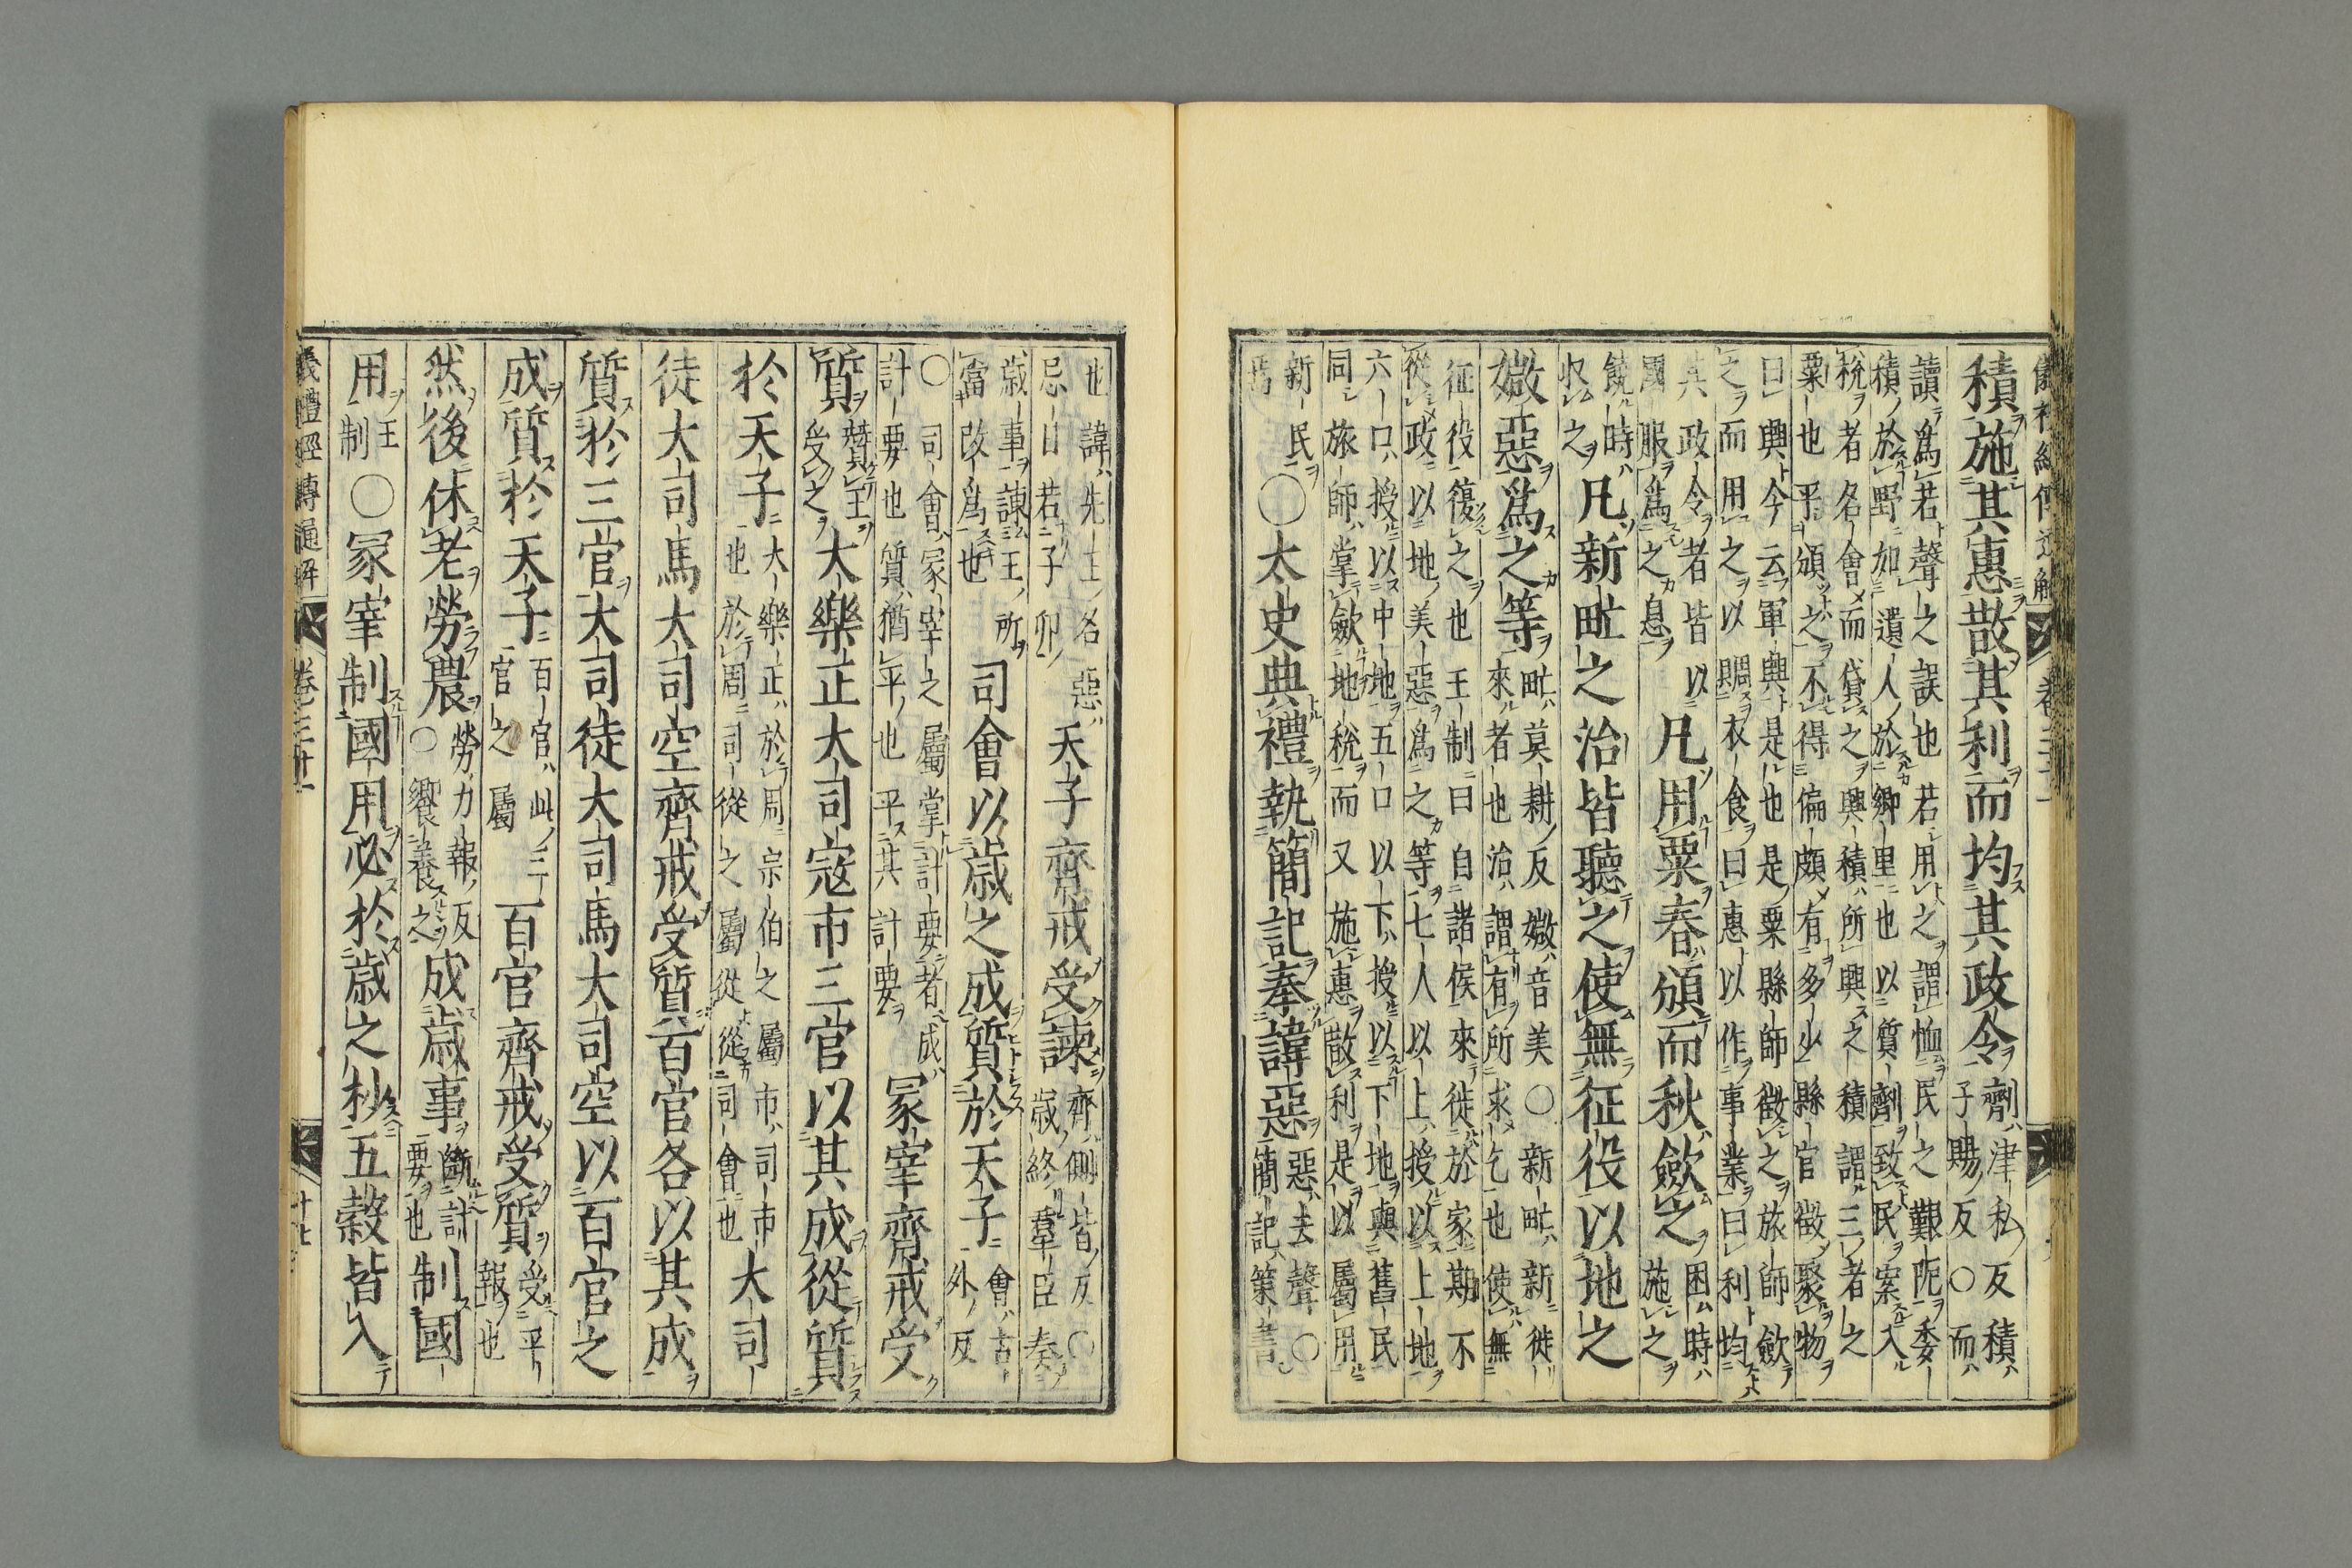 積施其惠散其利而均其政令
劑津私反積
子賜反○而
讀爲若聲之誤也若用之謂恤民之艱阨委
積於野如遺人於鄉里也以質劑致民案入
稅者名會而貸之興積所興之積謂三者之
粟也平頒之不得偏頗有多少縣官徵聚物
曰興今云軍興是也是粟縣師徵之旅師斂
之而用之以賙衣食曰惠以作事業曰利均
其政令者皆以
國服爲之息
凡用粟春頒而秋斂之
困時
施之
饒時
收之
凡新甿之治皆聽之使無征役以地之
媺惡爲之等
甿莫耕反媺音美○新甿新徙
來者也治謂有所求乞也使無
征役復之也王制曰自諸侯來徙於家期不
從政以地美惡爲之等七人以上授以上地
六口授以中地五口以下授以下地與舊民
同旅師掌斂地稅而又施惠散利是以屬用
新民
焉
○太史典禮執簡記奉諱惡
惡去聲○
簡記策書
也諱先王名惡
忌日若子卯
天子齊戒受諫
齊側皆反○
歲終羣臣奏
歲事諫王所
當改爲也
司會以歲之成質於天子
會古
外反
○司會冢宰之屬掌計要者成
計要也質猶平也平其計要
冢宰齊戒受
質
贊王
受之
大樂正大司寇市三官以其成從質
於天子
大樂正於周宗伯之屬市司市
也於周司徒之屬從從司會也
大司
徒大司馬大司空齊戒受質百官各以其成
質於三官大司徒大司馬大司空以百官之
成質於天子
百官此三
官之屬
百官齊戒受質
受平
報也
然後休老勞農
勞力報反
○饗養之
成歲事
斷計
要也
制國
用
王
制
○冢宰制國用必於歲之杪五穀皆入
儀禮經傳通解
卷三十一
十七